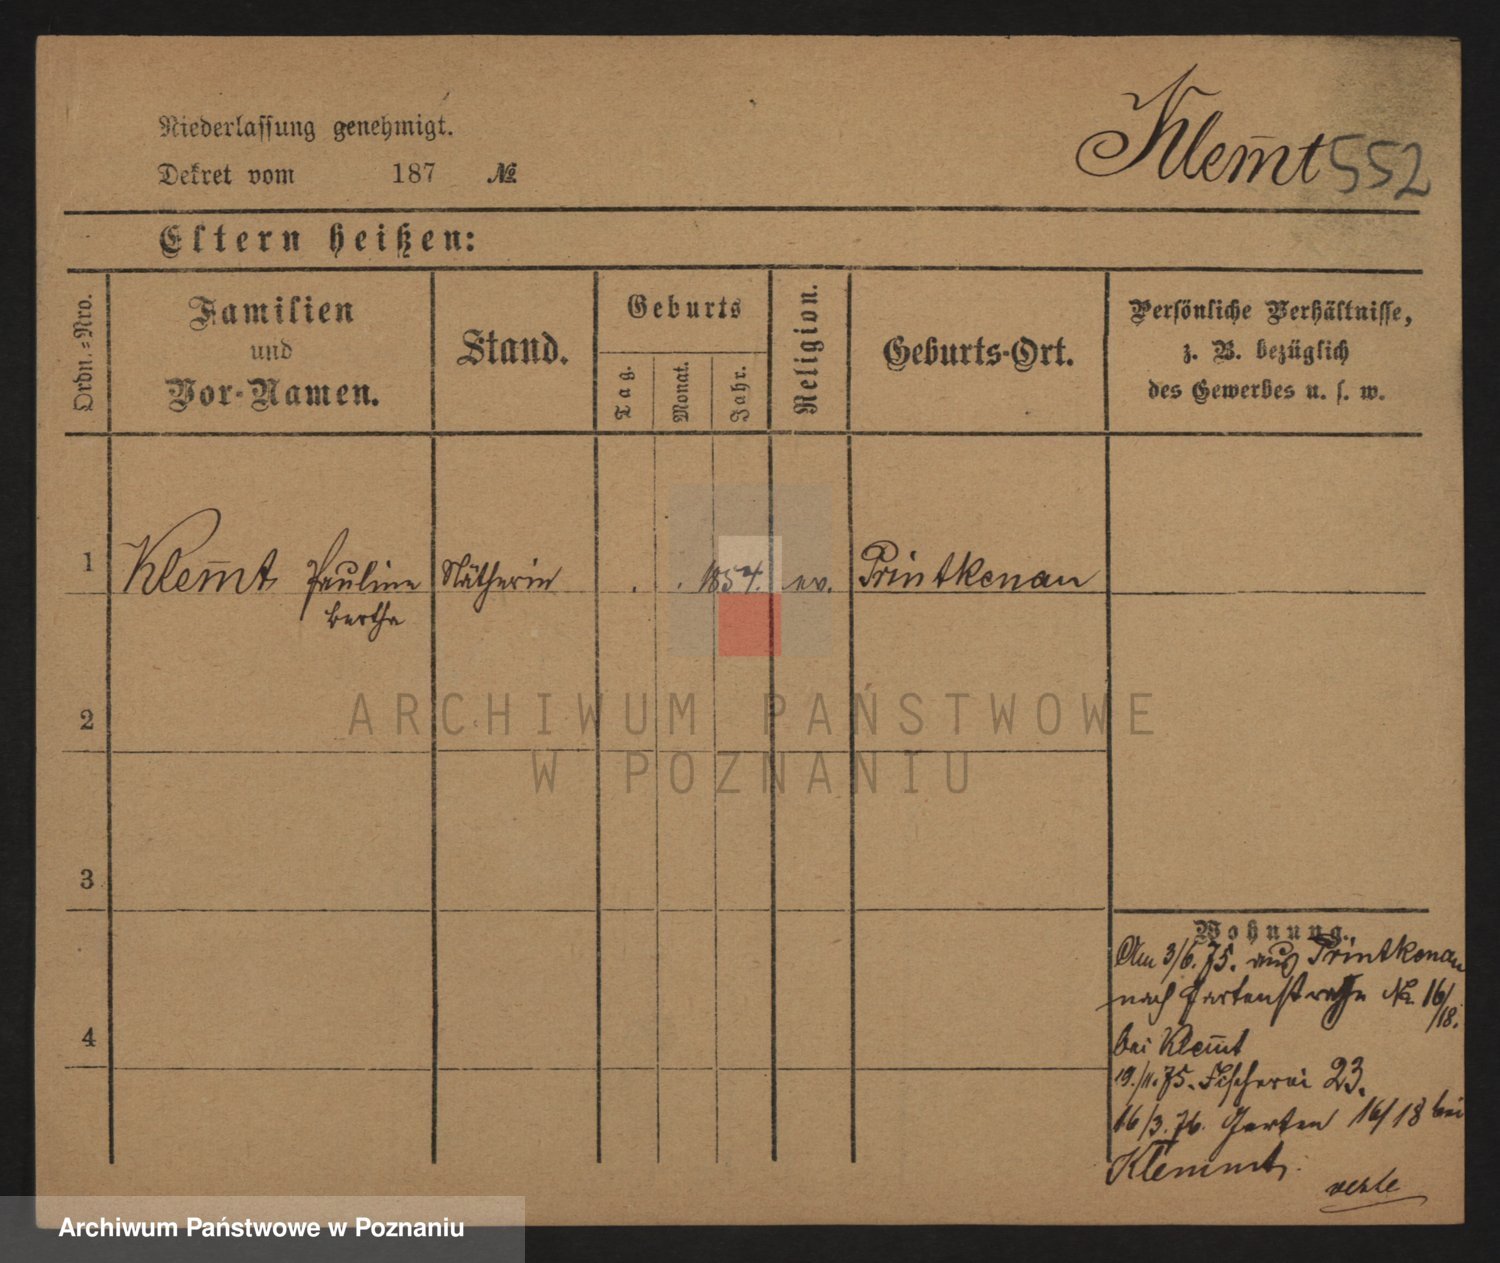 Niederlassung genehmigt.
Dekret vom 187 №
Klem̅t 552
Eltern heißen:
Ordn.=Nro.
Familien
und
Vor-Namen.
Stand.
Geburts
Tag.
Monat.
Jahr.
Religion.
Geburts-Ort.
Persönliche Verhältnisse,
z. B. bezüglich
des Gewerbes u. s. w.
1 Klem̅t Pauline Nätherin . . 1854. ev. Printkenau
Bertha
2
3
4
Wohnung.
Am 3/6. 75. aus Printkenau
nach Gartenstraße No. 16/
/18.
bei Klem̅t
19./11. 75. Fischerei 23.
16/3. 76. Garten 16/18 bei
Klemmt.
ARCHIWUM PAŃSTWOWE
W POZNANIU
Archiwum Państwowe w Poznaniu